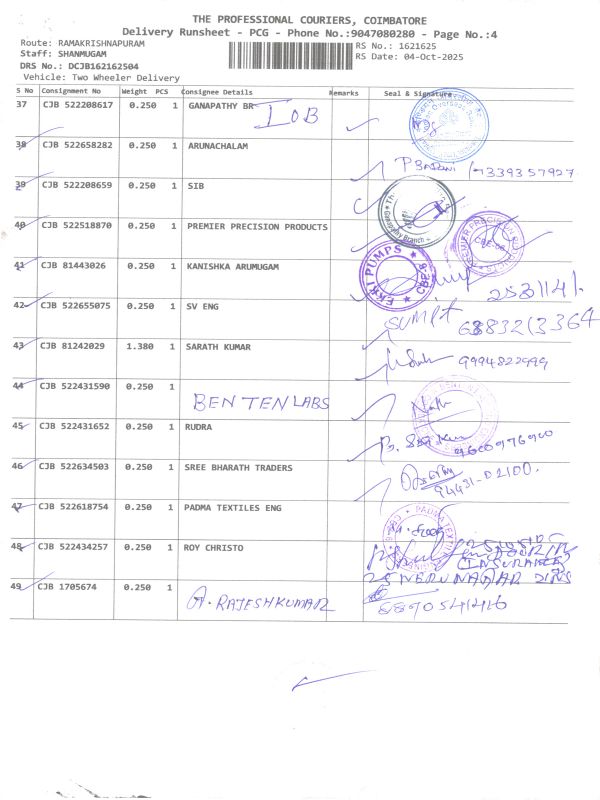 THE PROFESSIONAL COURIERS, COIMBATORE
Delivery Runsheet - PCG - Phone No.:9047080280 - Page No.:4
Route: RAMAKRISHNAPURAM
Staff: SHANMUGAM
DRS No.: DCJB162162504
Vehicle: Two Wheeler Delivery
RS No.: 1621625
RS Date: 04-Oct-2025
S No Consignment No Weight PCS Consignee Details Remarks Seal & Signature
37 CJB 522208617 0.250 1 GANAPATHY BR IOB
38 CJB 522658282 0.250 1 ARUNACHALAM
39 CJB 522208659 0.250 1 SIB
40 CJB 522518870 0.250 1 PREMIER PRECISION PRODUCTS
41 CJB 81443026 0.250 1 KANISHKA ARUMUGAM
EKKI PUMPS
2531141
42 CJB 522655075 0.250 1 SV ENG
43 CJB 81242029 1.380 1 SARATH KUMAR
9994822999
44 CJB 522431590 0.250 1 BEN TEN LABS
45 CJB 522431652 0.250 1 RUDRA
9600976900
46 CJB 522634503 0.250 1 SREE BHARATH TRADERS
94431-02100.
47 CJB 522618754 0.250 1 PADMA TEXTILES ENG
48 CJB 522434257 0.250 1 ROY CHRISTO
49 CJB 1705674 0.250 1 A. RAJESHKUMAR
8890541416